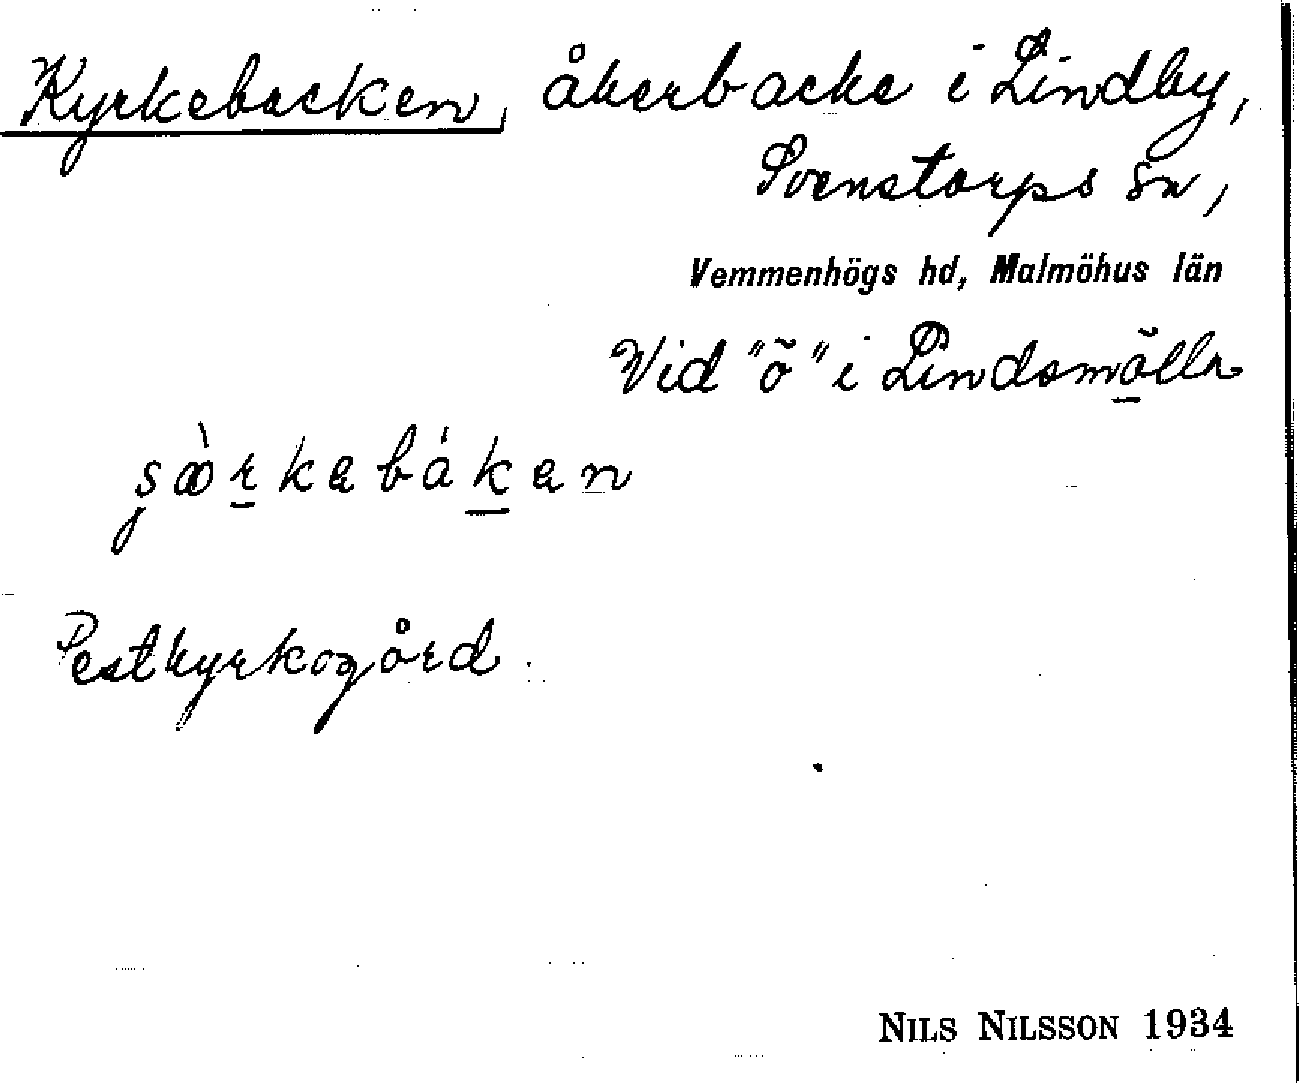 Kyrkebacken, åkerbacke i Lindby,
Svenstorps sn,
Vemmenhögs hd, Malmöhus län
Vid "ö" i Lindsmölla
Pestkyrkogård.
NILS NILSSON 1934